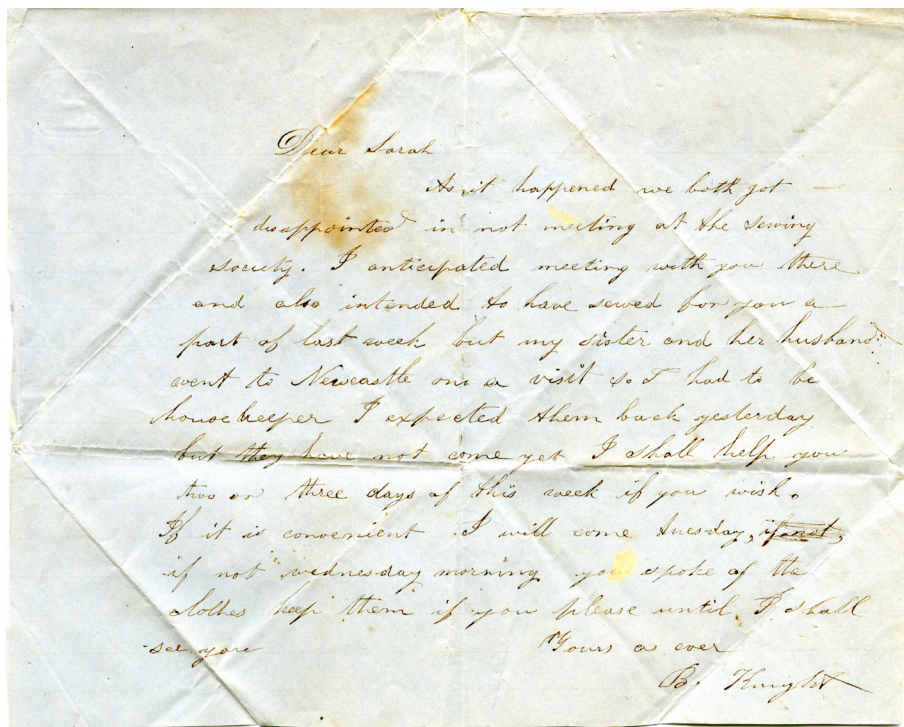 Dear Sarah
As it happened we both got
disappointed in not meeting at the sewing
society. I anticipated meeting with you there
and also intended to have sewed for you a
part of last week but my sister and her husband
went to Newcastle on a visit so I had to be
housekeeper I expected them back yesterday
but they have not come yet I shall help you
two or three days of this week if you wish.
If it is convenient I will come tuesday, if not,
if not wednesday morning you spoke of the
clothes keep them if you please until I shall
see you
Yours as ever
B. Knight